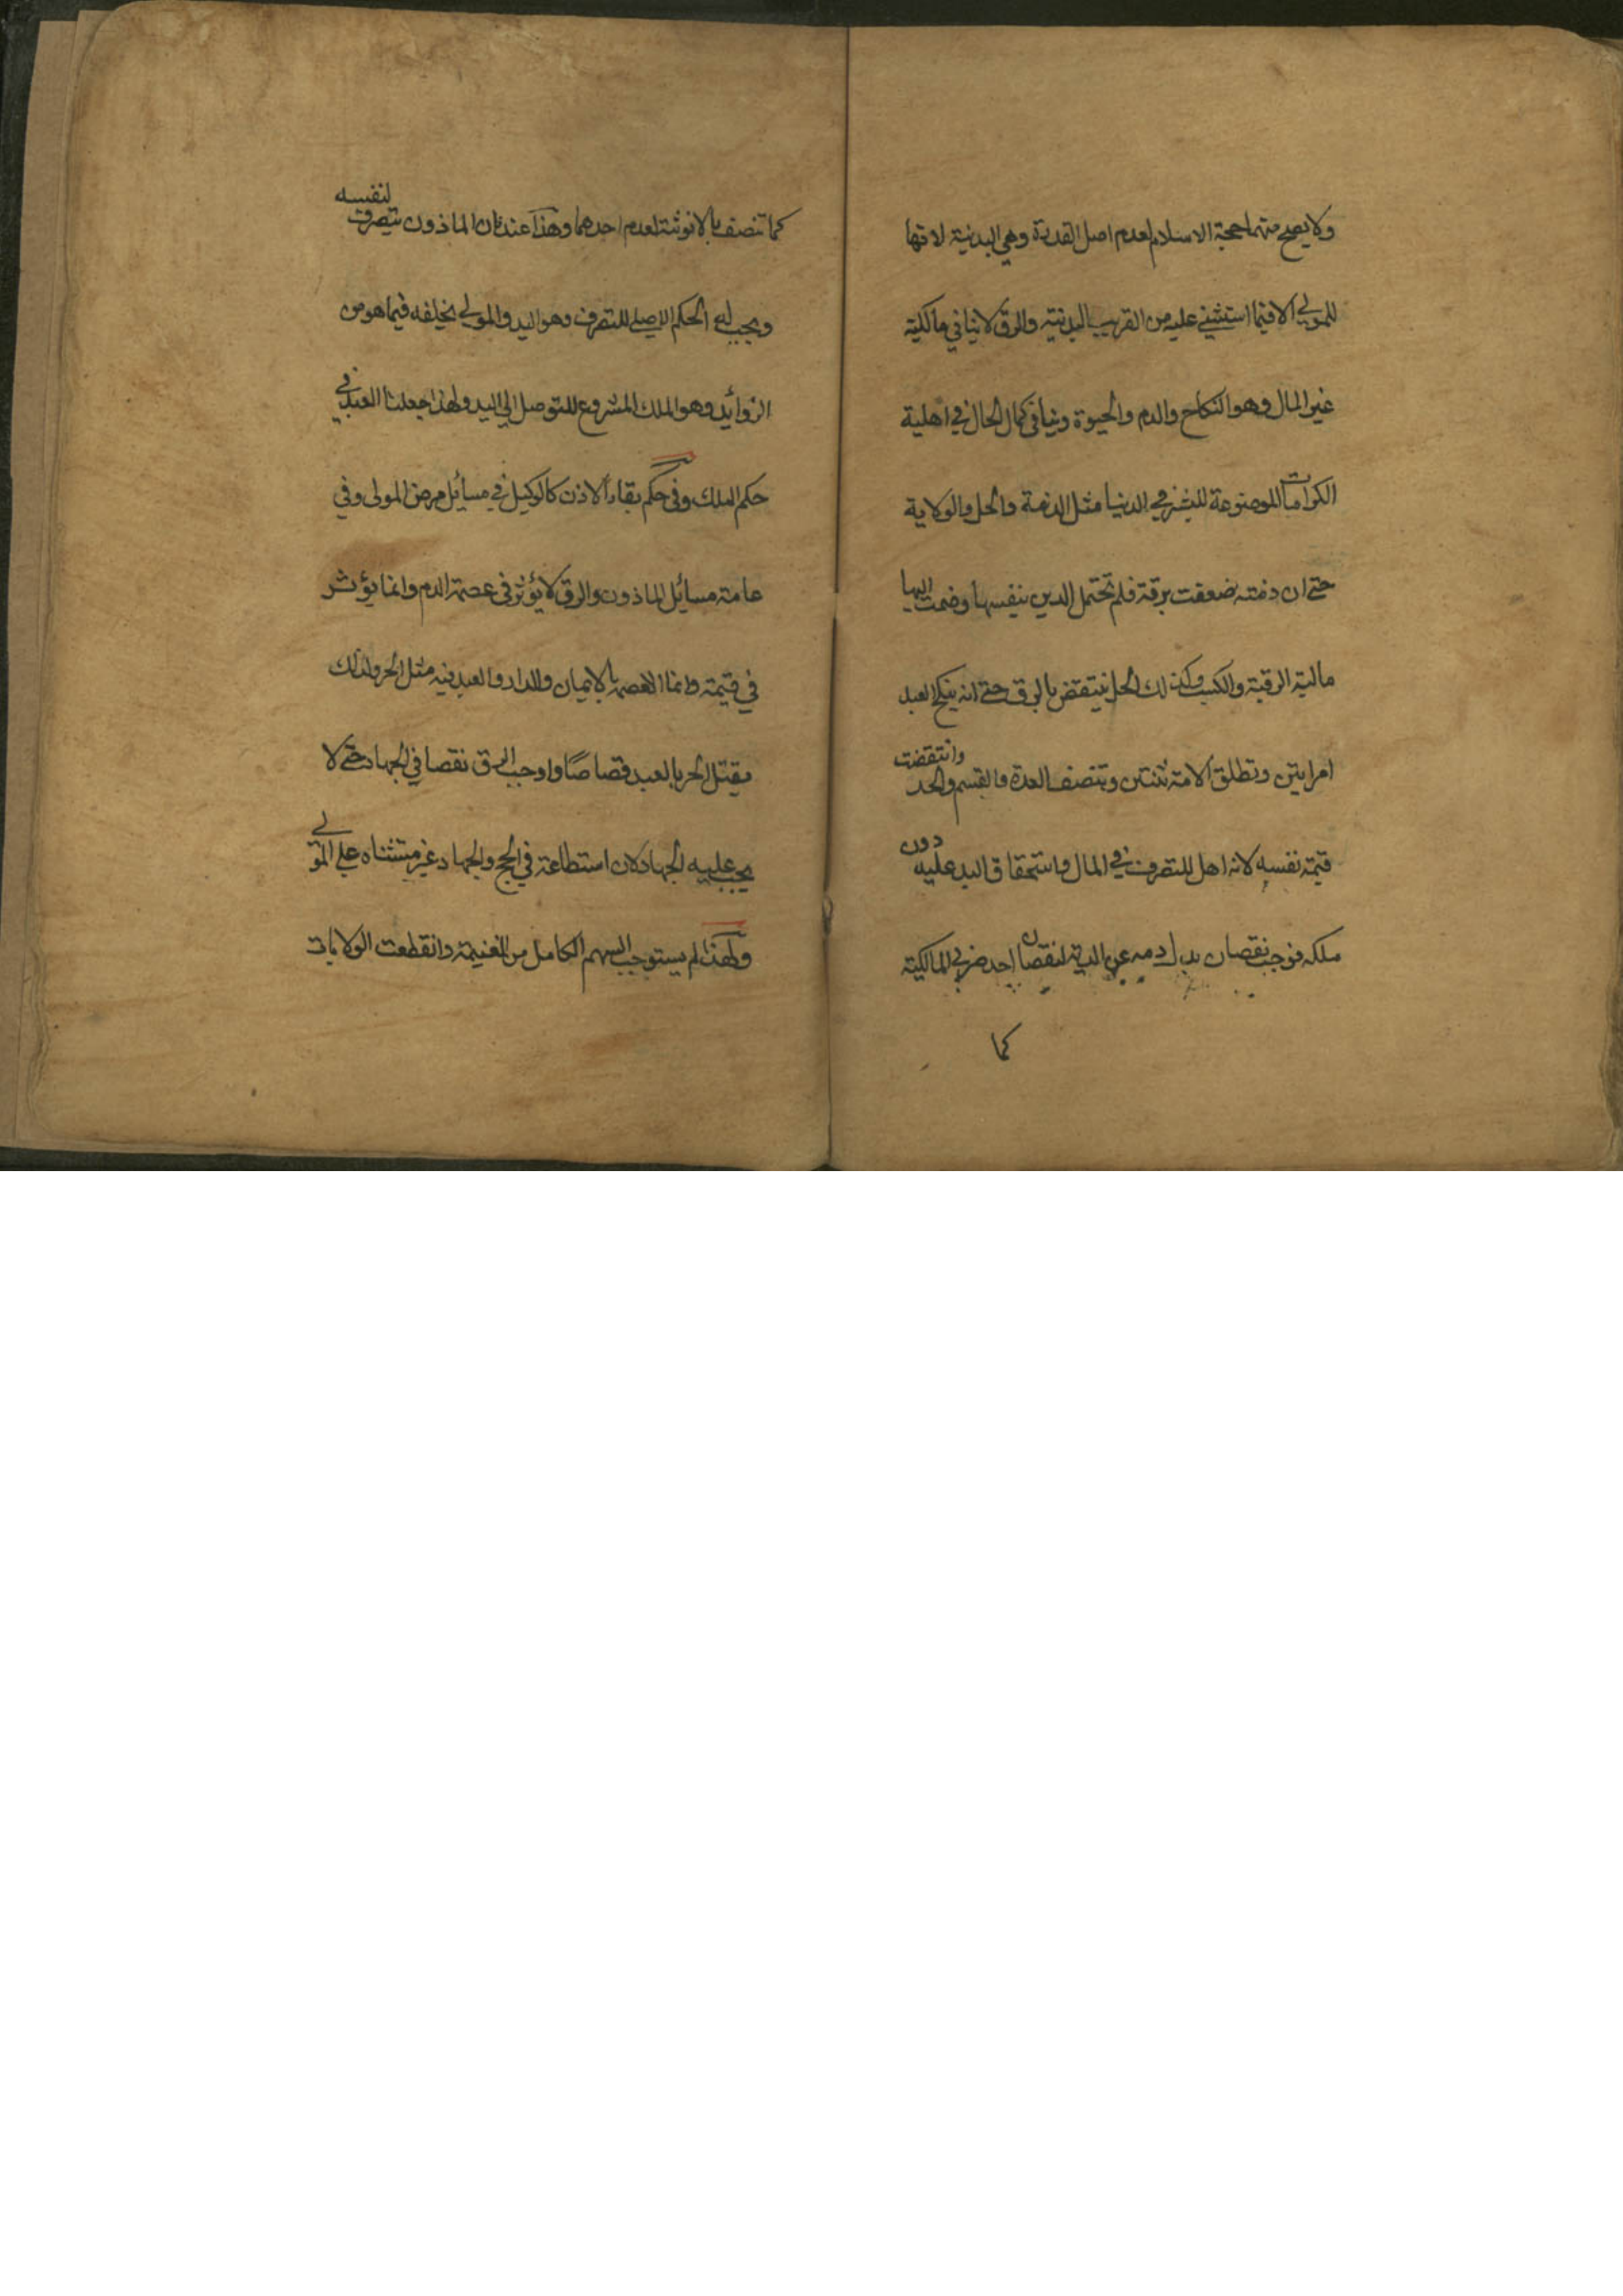 ولا يصح منهما حجة الاسلام لعدم اصل القدرة وهي البدنية لانها
للمولى الا فيما استثنى عليه من القرب البدنية والرق لا ينافي مالكية
غير المال وهو النكاح والدم والحيوة وينافى كمال الحال في اهلية
الكرامات الموضوعة للبشر في الدنيا مثل الذمة والحل والولاية
حتى ان ذمته ضعفت برقه فلم تحتمل الدين بنفسها وضمت اليها
مالية الرقبة والكسب وكذلك الحل ينتقض بالرق حتى انه ينكح العبد
امراتين وتطلق الامة ثنتين وتتنصف العدة والقسم والحد وانتقضت
قيمة نفسه لانه اهل للتصرف في المال واستحقاق اليد عليه دون
ملكه فوجب نقصان بدل دمه عن الدية لنقصان احد ضربي المالكية
كما
كما تنصف بالانوثة لعدم احدهما وهذا عندنا ان الماذون يتصرف لنفسه
ويجب له الحكم الاصلي للتصرف وهو اليد والمولى يخلفه فيما هو من
الزوائد وهو الملك المشروع للتوصل الى اليد ولهذا جعلنا العبد في
حكم الملك وفى حكم بقاء الاذن كالوكيل في مسائل مرض المولى وفي
عامة مسائل الماذون والرق لا يؤثر فى عصمة الدم وانما يؤثر
في قيمته وانما العصمة بالايمان والدار والعبد فيه مثل الحر ولذلك
يقتل الحر بالعبد قصاصًا واوجب الرق نقصا في الجهاد حتى لا
يجب عليه الجهاد لان استطاعته في الحج والجهاد غير مستثناه على المولى
ولهذا لم يستوجب السهم الكامل من الغنيمة وانقطعت الولايات